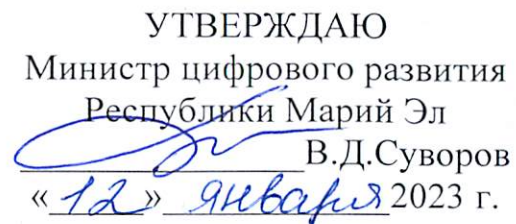 УТВЕРЖДАЮ
Министр цифрового развития
Республики Марий Эл
В.Д.Суворов
«12» января 2023 г.